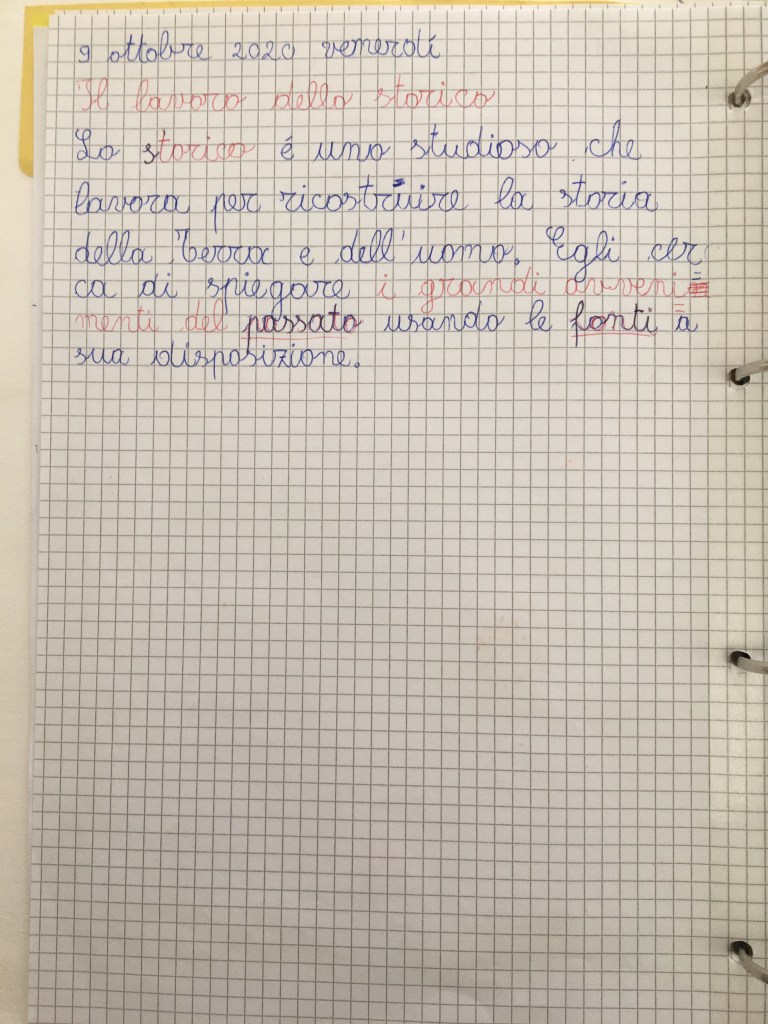 9 ottobre 2020 venerdí
Il lavoro dello storico
Lo storico é uno studioso che
lavora per ricostruire la storia
della Terra e dell'uomo. Egli cer
ca di spiegare i grandi avveni=
menti del passato usando le fonti a
sua disposizione.